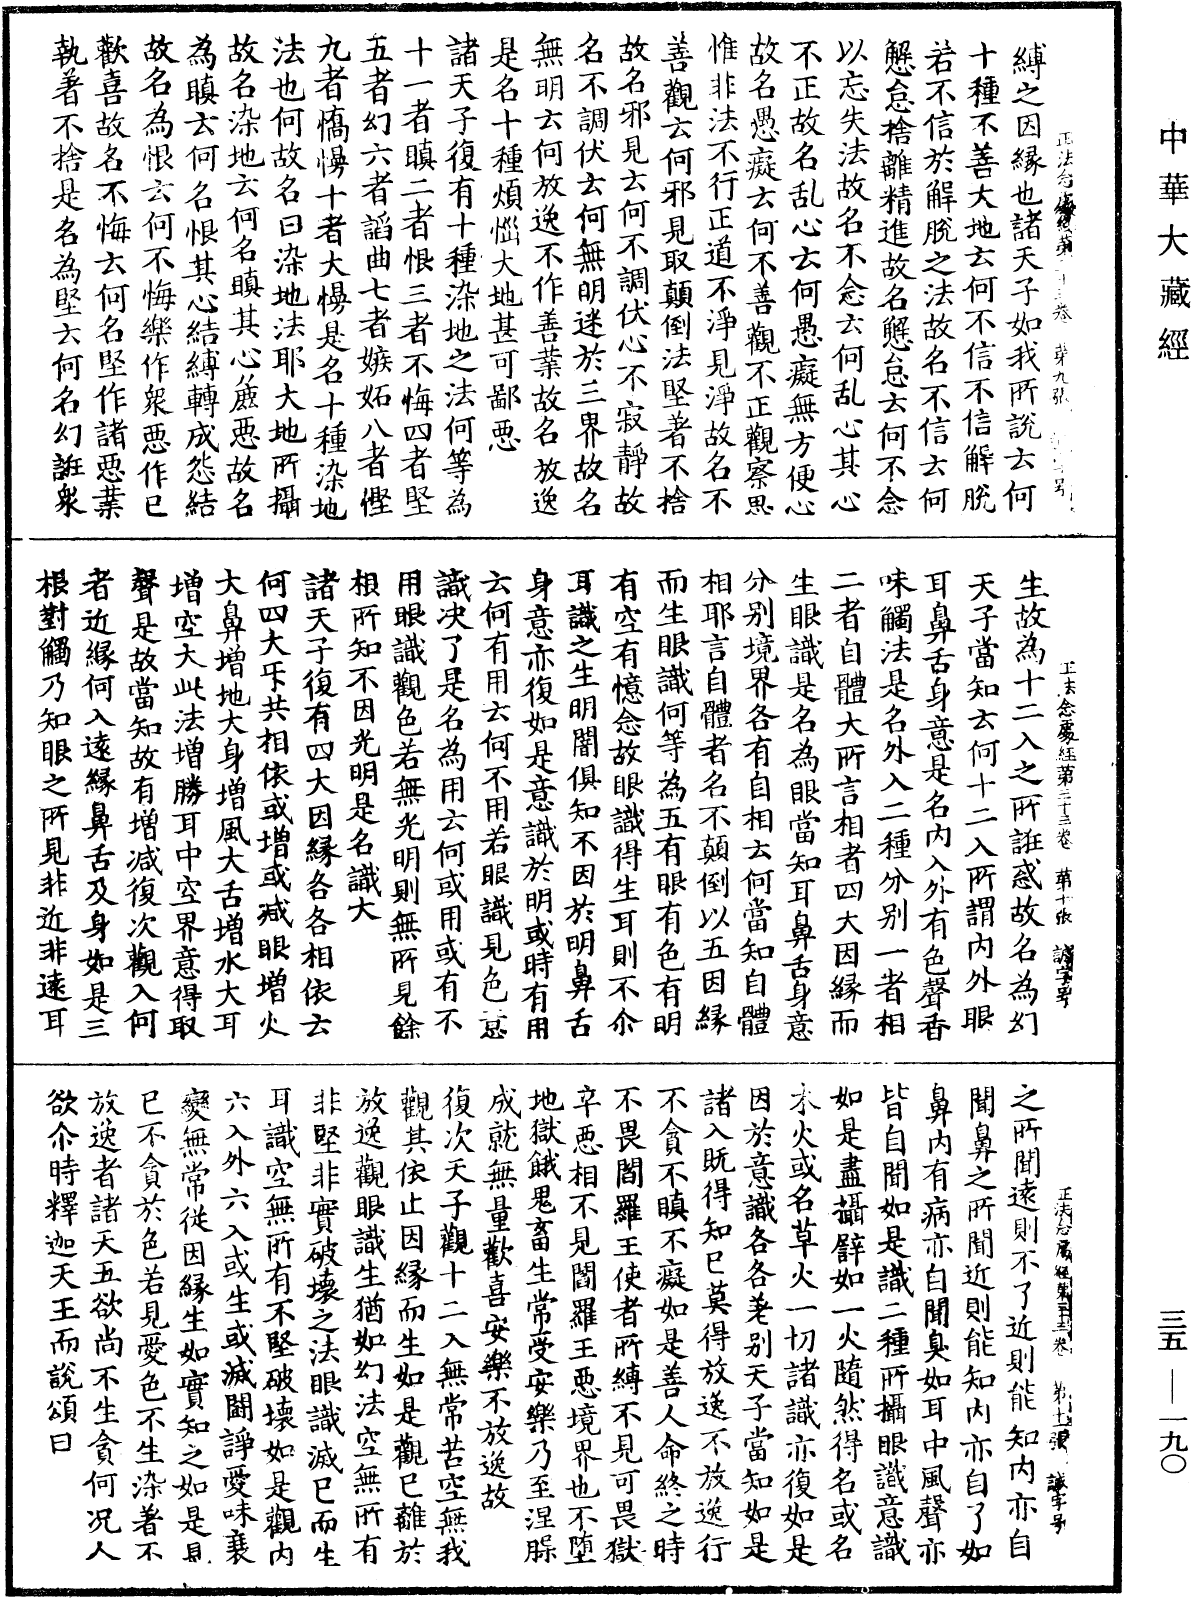 中華大藏經
縛之因緣也諸天子如我所說云何
十種不善大地云何不信不信解脫
若不信於解脫之法故名不信云何
懈怠捨離精進故名懈怠云何不念
以忘失法故名不念云何乱心其心
不正故名乱心云何愚癡無方便心
故名愚癡云何不善觀不正觀察思
惟非法不行正道不淨見淨故名不
善觀云何邪見取顛倒法堅著不捨
故名邪見云何不調伏心不寂靜故
名不調伏云何無明迷於三界故名
無明云何放逸不作善業故名放逸
是名十種煩惱大地甚可鄙惡
諸天子復有十種染地之法何等為
十一者瞋二者恨三者不悔四者堅
五者幻六者諂曲七者嫉妬八者慳
九者憍慢十者大慢是名十種染地
法也何故名曰染地法耶大地所攝
故名染地云何名瞋其心麁惡故名
為瞋云何名恨其心結縛轉成怨結
故名為恨云何不悔樂作衆惡作已
歡喜故名不悔云何名堅作諸惡業
執著不捨是名為堅云何名幻誑衆
正法念處經第三十三卷 第十張 誠字号
生故為十二入之所誑惑故名為幻
天子當知云何十二入所謂內外眼
耳鼻舌身意是名內入外有色聲香
味觸法是名外入二種分別一者相
二者自體大所言相者四大因緣而
生眼識是名為眼當知耳鼻舌身意
分別境界各有自相云何當知自體
相耶言自體者名不顛倒以五因緣
而生眼識何等為五有眼有色有明
有空有憶念故眼識得生耳則不尒
耳識之生明闇俱知不因於明鼻舌
身意亦復如是意識於明或時有用
云何有用云何不用若眼識見色意
識决了是名為用云何或用或有不
用眼識觀色若無光明則無所見餘
根所知不因光明是名識大
諸天子復有四大因緣各各相依云
何四大㸦共相依或增或減眼增火
大鼻增地大身增風大舌增水大耳
增空大此法增勝耳中空界意得取
聲是故當知故有增減復次觀入何
者近緣何入遠緣鼻舌及身如是三
根對觸乃知眼之所見非近非遠耳
之所聞遠則不了近則能知內亦自
聞鼻之所聞近則能知內亦自了如
鼻內有病亦自聞臭如耳中風聲亦
皆自聞如是識二種所攝眼識意識
如是盡攝譬如一火隨然得名或名
木火或名草火一切諸識亦復如是
因於意識各各差別天子當知如是
諸入既得知已莫得放逸不放逸行
不貪不瞋不癡如是善人命終之時
不畏閻羅王使者所縛不見可畏獄
卒惡相不見閻羅王惡境界也不墮
地獄餓鬼畜生常受安樂乃至涅槃
成就無量歡喜安樂不放逸故
復次天子觀十二入無常苦空無我
觀其依止因緣而生如是觀已離於
放逸觀眼識生猶如幻法空無所有
非堅非實破壞之法眼識滅已而生
耳識空無所有不堅破壞如是觀內
六入外六入或生或滅鬪諍愛味衰
變無常從因緣生如實知之如是見
已不貪於色若見愛色不生染著不
放逸者諸天五欲尚不生貪何况人
欲尒時釋迦天王而說頌曰
三五—一九〇